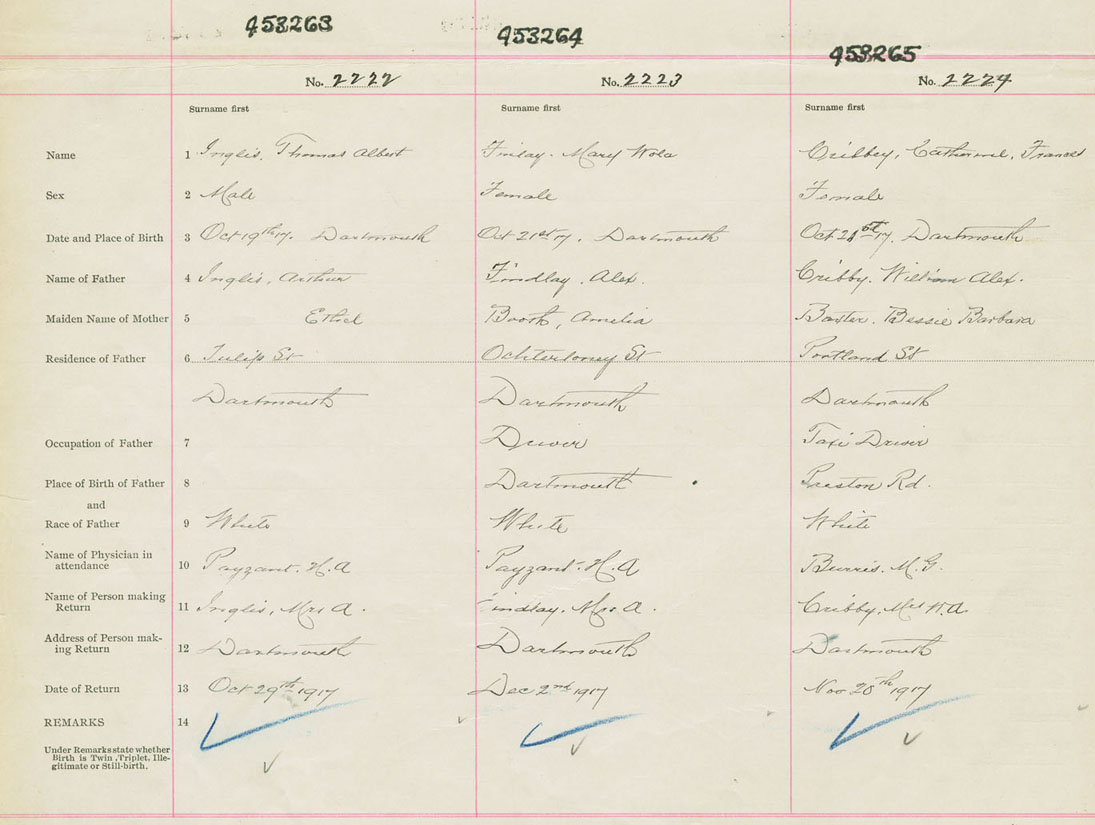 453263 453264 453265
No. 2222 No. 2223 No. 2224
Surname first Surname first Surname first
Name 1 Inglis, Thomas Albert Finlay. Mary Wola Cribbey, Catherine, Frances
Sex 2 Male Female Female
Date and Place of Birth 3 Oct 19th 17. Dartmouth Oct 21st 17. Dartmouth Oct 17. Dartmouth
Name of Father 4 Inglis, Arthur Findlay, Alex. Cribby. William Alex.
Maiden Name of Mother 5 Ethel Booth, Amelia Baxter. Bessie Barbara
Residence of Father 6 Tulip St Ochterloney St Portland St
Dartmouth Dartmouth Dartmouth
Occupation of Father 7 Driver Taxi Driver
Place of Birth of Father 8 Dartmouth Preston Rd.
and
Race of Father 9 White White White
Name of Physician in
attendance 10 Payzant. H. A Payzant. H. A Burris. M. G.
Name of Person making
Return 11 Inglis, Mrs A. Findlay, Mrs A. Cribby, Mrs W. A.
Address of Person mak-
ing Return 12 Dartmouth Dartmouth Dartmouth
Date of Return 13 Oct 29th 1917 Dec 2nd 1917 Nov 20th 1917
REMARKS 14
Under Remarks state whether
Birth is Twin, Triplet, Ille-
gitimate or Still-birth.